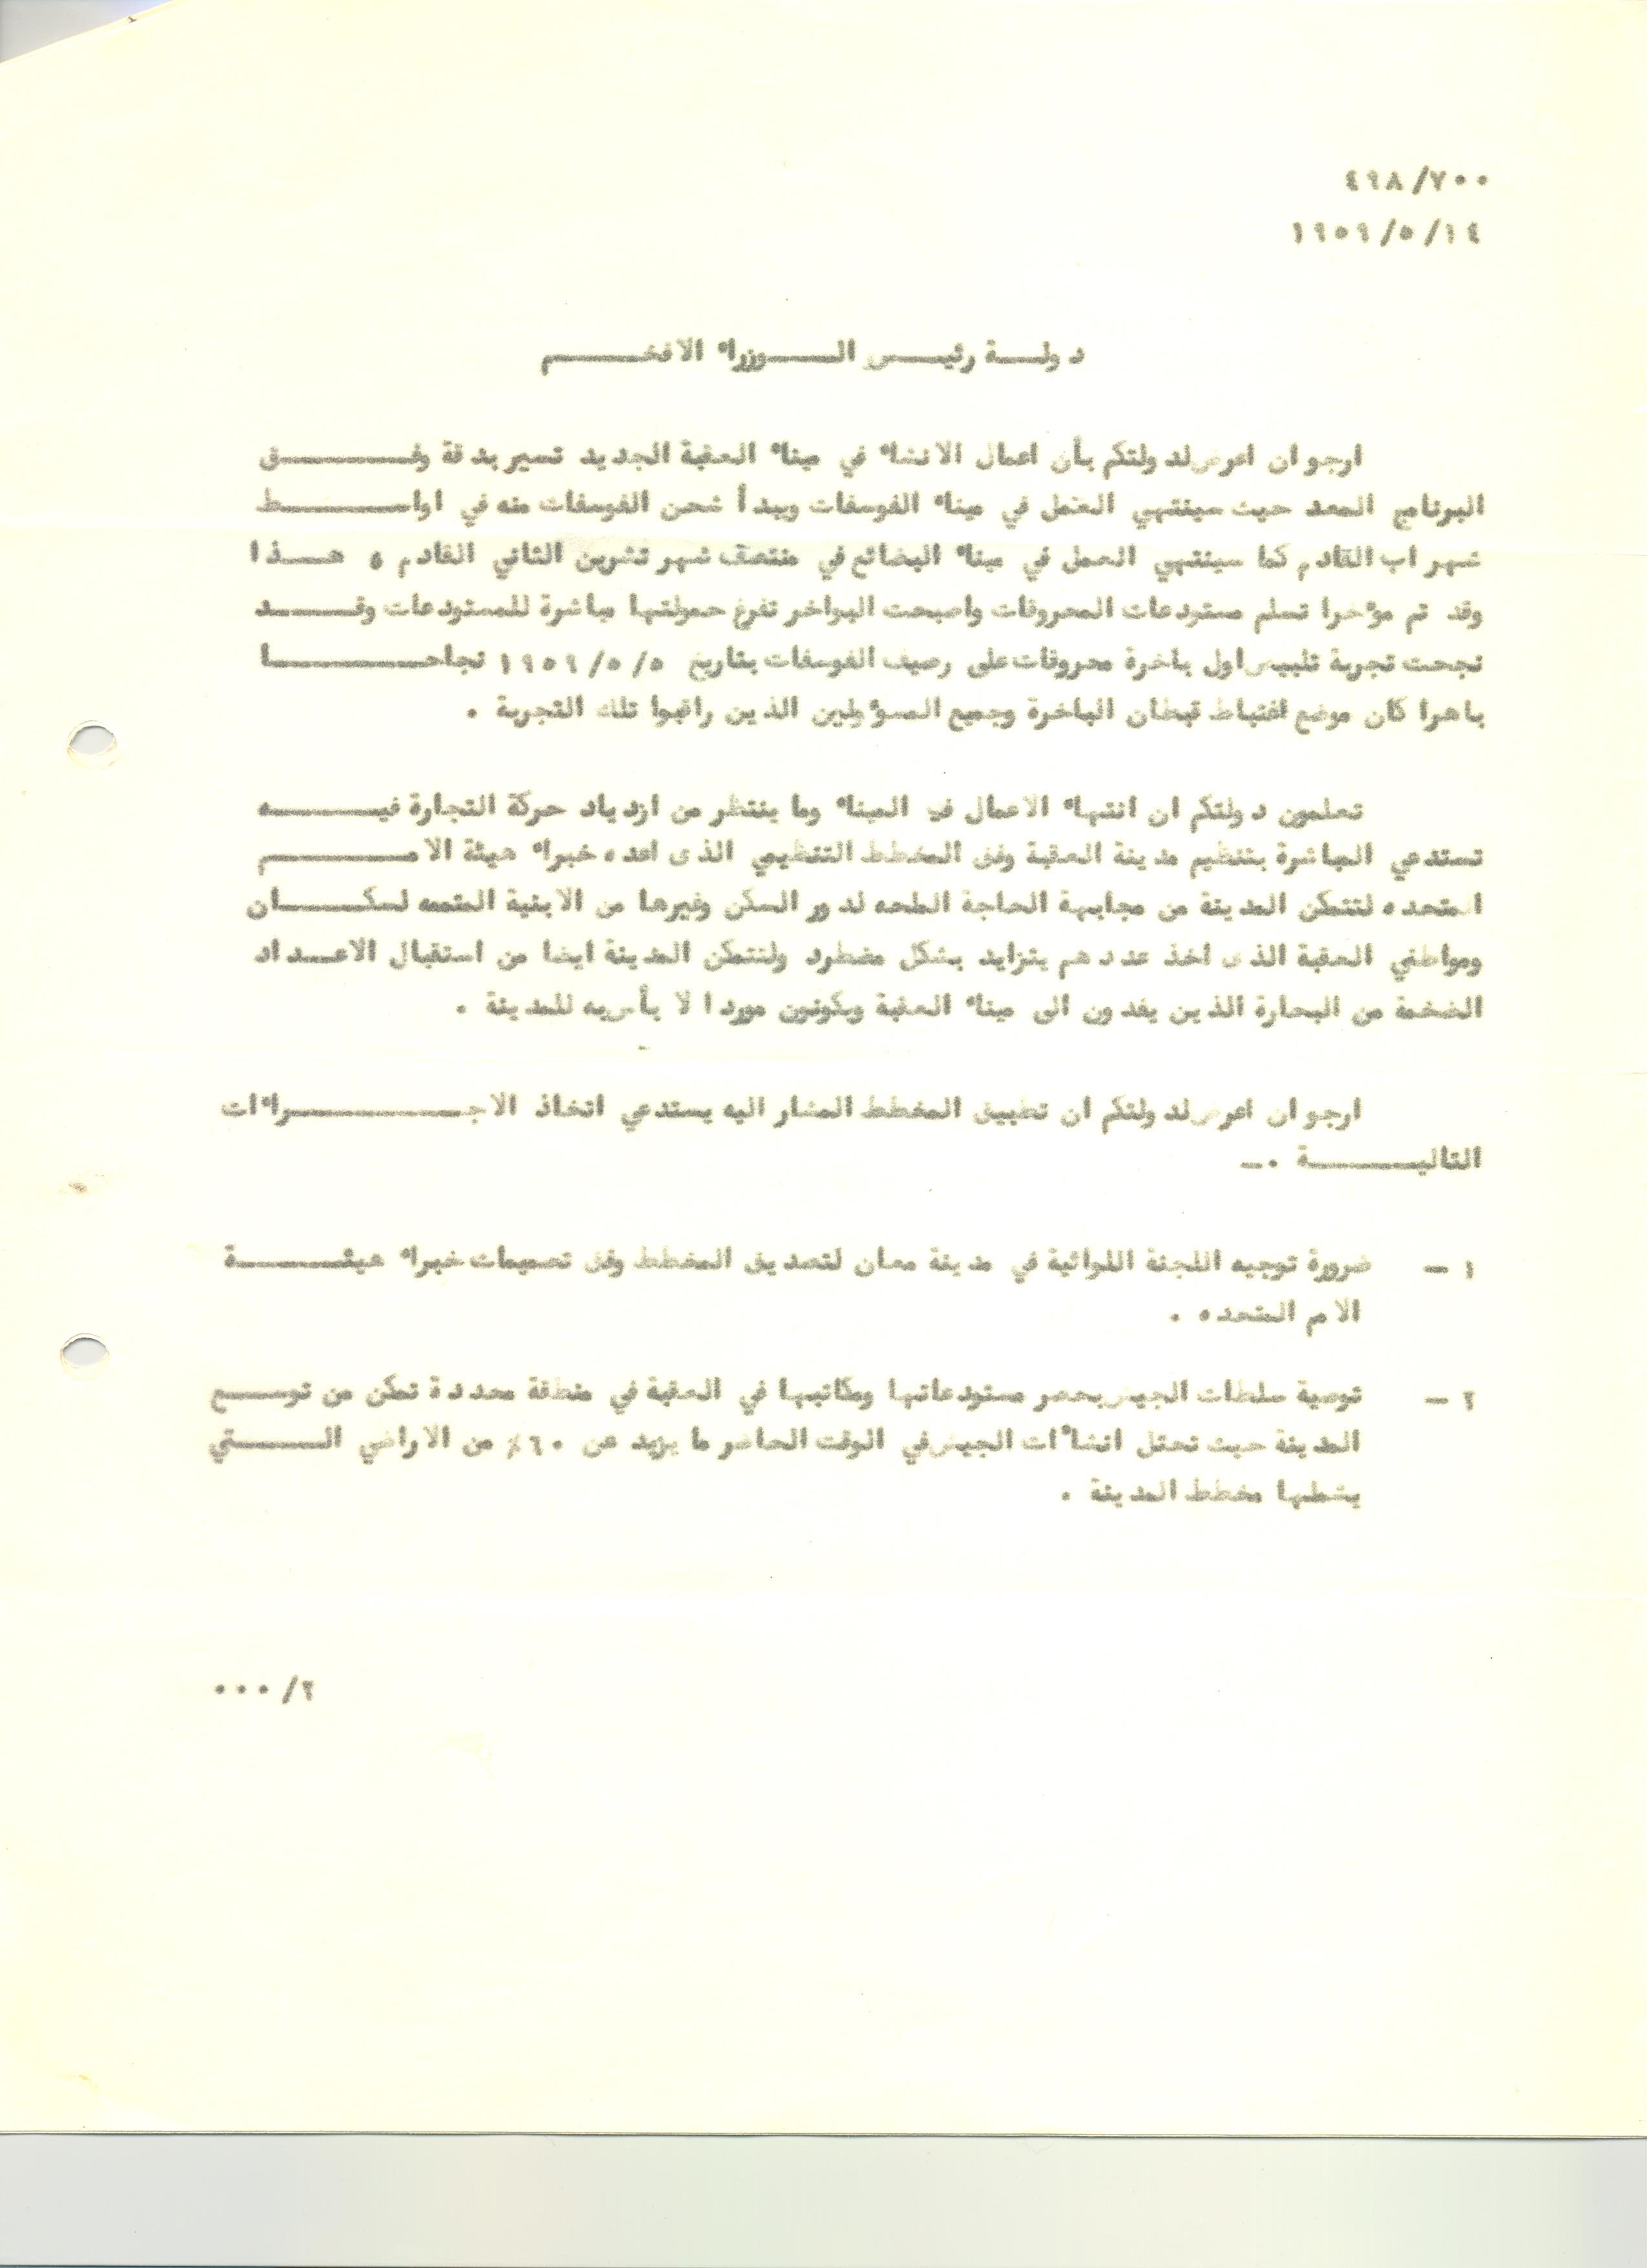 ٧٠٠/ ٤٩٨
١٤/ ٥/ ١٩٥٩
دولة رئيس الوزراء الافخم
ارجو ان اعرض لدولتكم بأن اعمال الانشاء في ميناء العقبة الجديد تسير بدقة وفق
البرنامج المعد حيث سينتهي العمل في ميناء الفوسفات ويبدأ شحن الفوسفات منه في اواسط
شهر اب القادم كما سينتهي العمل في ميناء البضائع في منتصف شهر تشرين الثاني القادم ، هذا
وقد تم مؤخرا تسلم مستودعات المحروقات واصبحت البواخر تفرغ حمولتها مباشرة للمستودعات وقد
نجحت تجربة تلبيص اول باخرة محروقات على رصيف الفوسفات بتاريخ ٥/ ٥/ ١٩٥٩ نجاحا
باهرا كان موضع اغتباط قبطان الباخرة وجميع المسؤولين الذين راقبوا تلك التجربة .
تعلمون دولتكم ان انتهاء الاعمال في الميناء وما ينتظر من ازدياد حركة التجارة فيه
تستدعي المباشرة بتنظيم مدينة العقبة وفق المخطط التنظيمي الذى اعده خبراء هيئة الامم
المتحده لتتمكن المدينة من مجابهة الحاجة الملحه لدور السكن وغيرها من الابنية المتممه لسكان
ومواطني العقبة الذى اخذ عددهم يتزايد بشكل مضطرد ولتتمكن المدينة ايضا من استقبال الاعداد
الضخمة من البحارة الذين يفدون الى ميناء العقبة ويكونون موردا لا بأس به للمدينة .
ارجو ان اعرض لدولتكم ان تطبيق المخطط المشار اليه يستدعي اتخاذ الاجراءات
التالية .-
١ - ضرورة توجيه اللجنة اللوائية في مدينة معان لتصديق المخطط وفق تصميمات خبراء هيئة
الامم المتحده .
٢ - توصية سلطات الجيش بحصر مستودعاتها ومكاتبها في العقبة في منطقة محددة تمكن من توسع
المدينة حيث تحتل انشاءات الجيش في الوقت الحاضر ما يزيد عن ٦٠٪ من الاراضي التي
يشملها مخطط المدينة .
٢/ ...